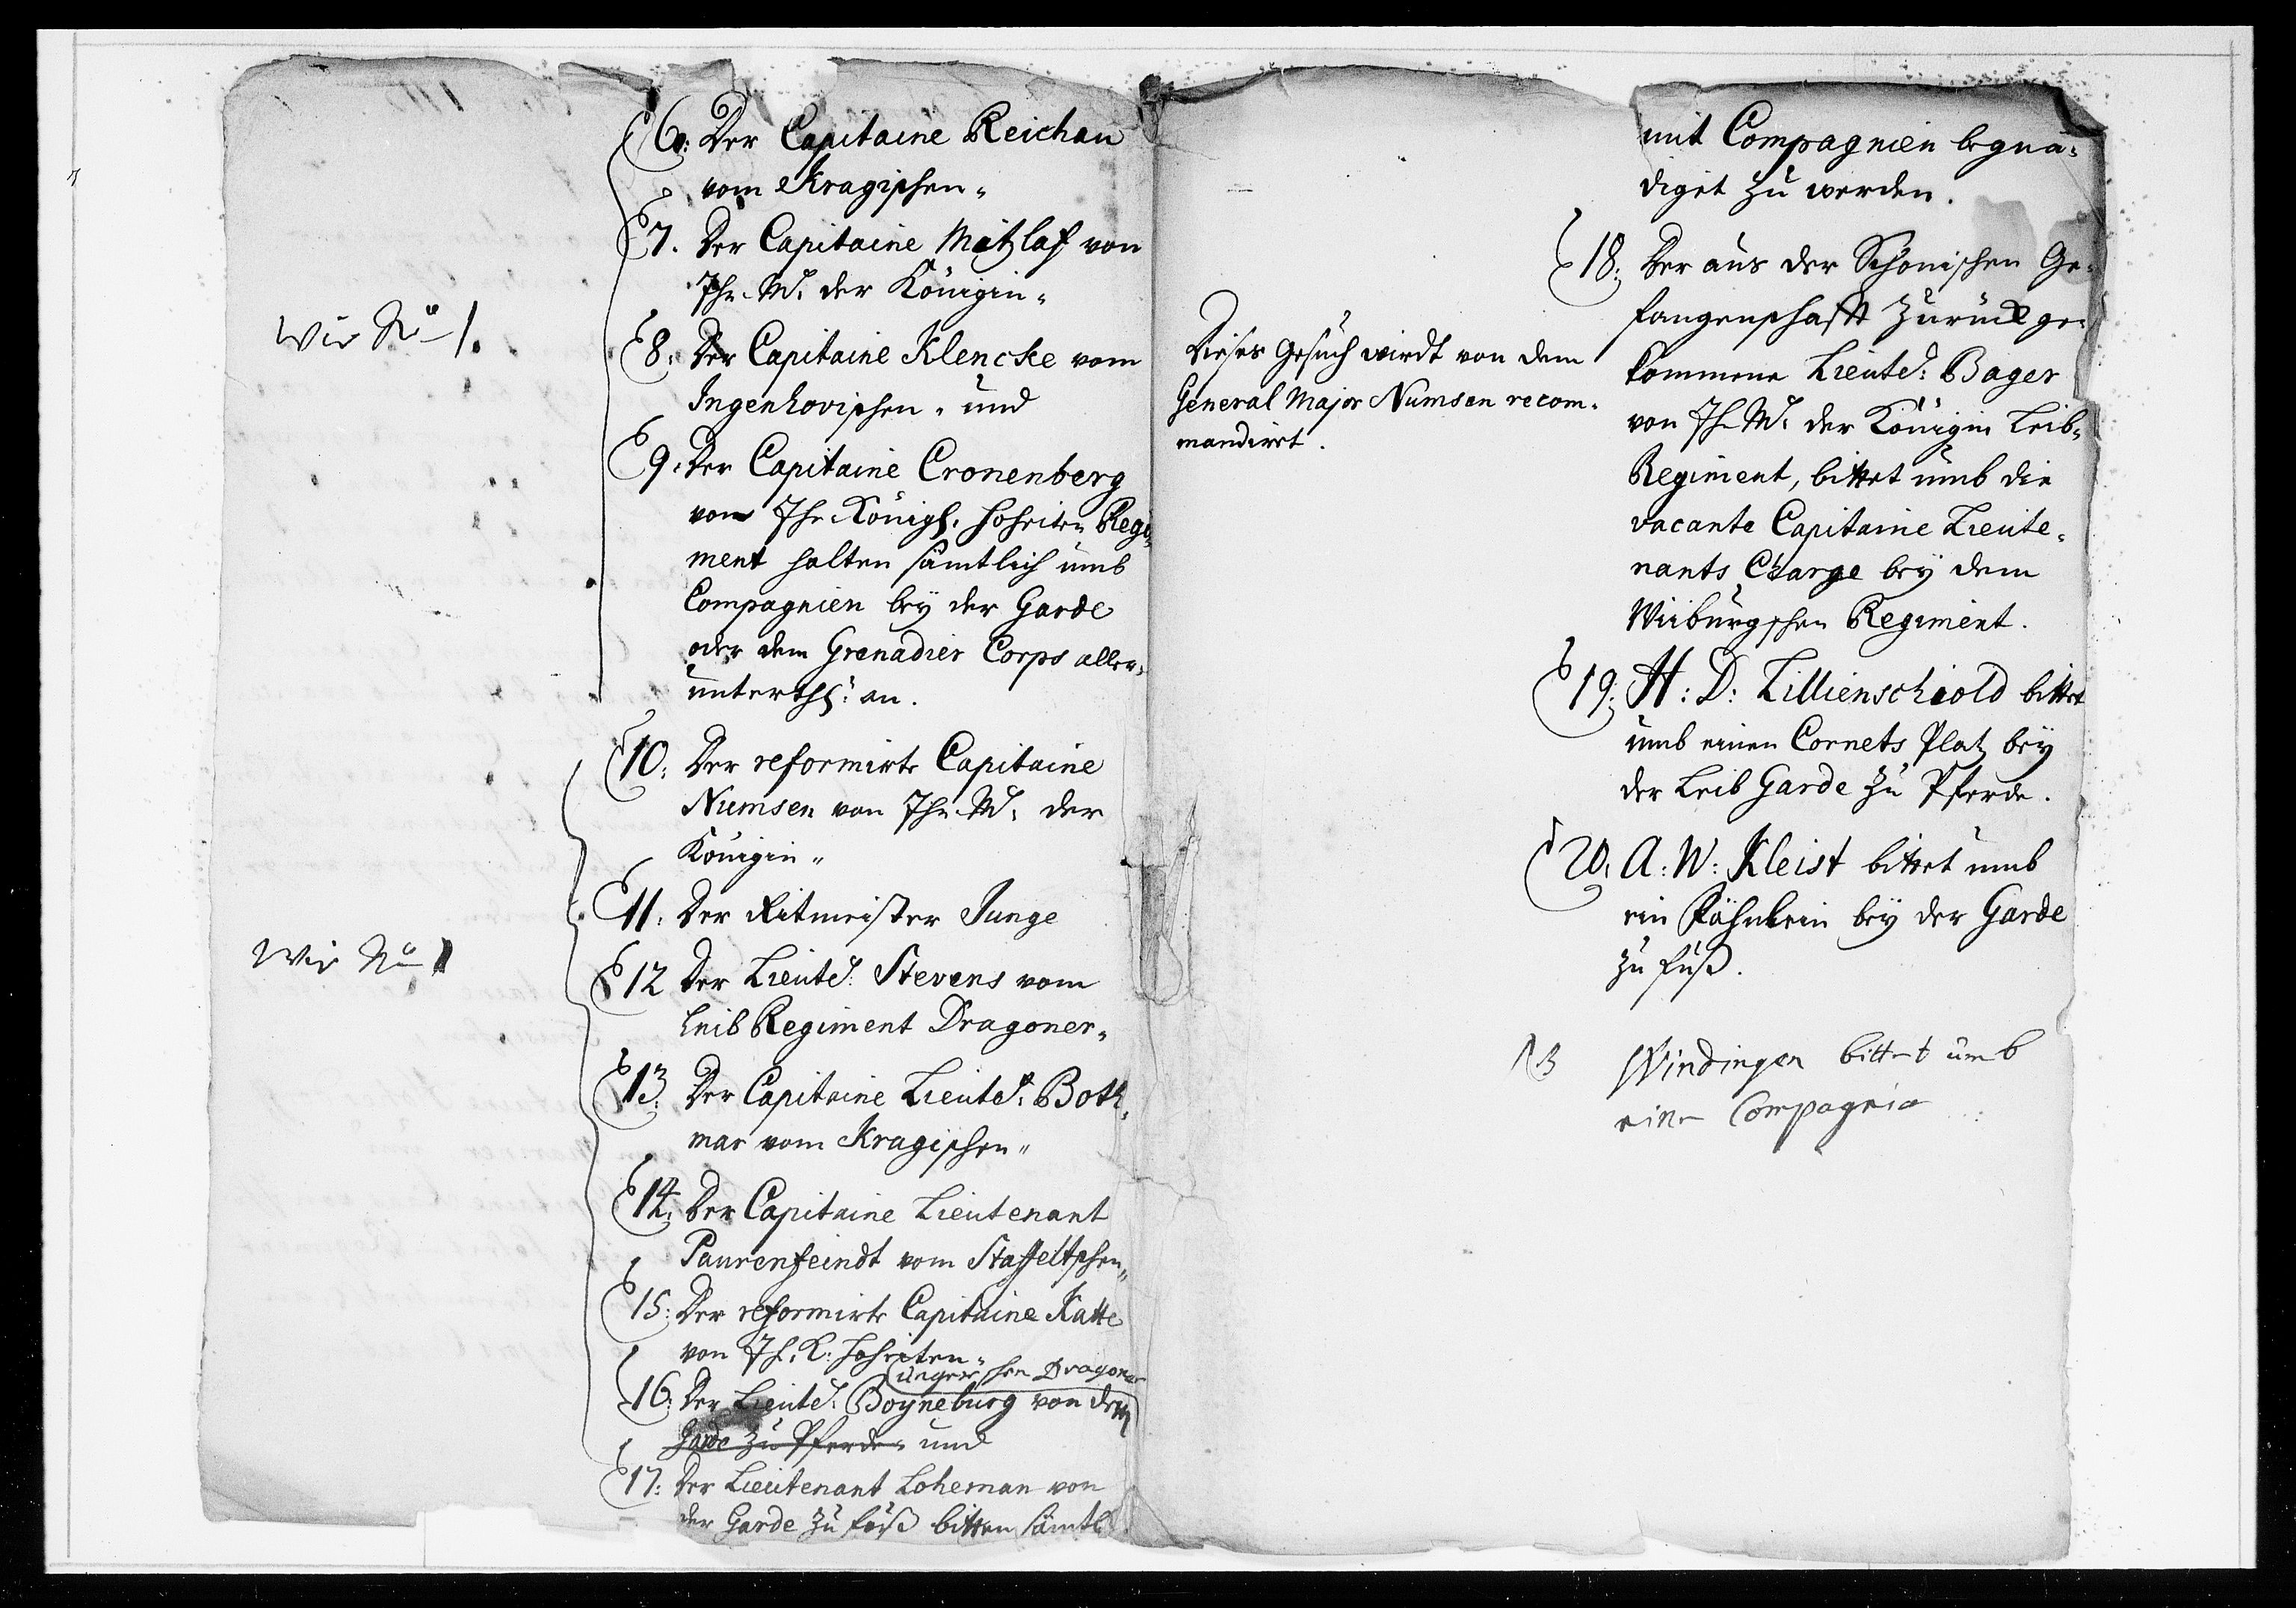 6. Der Capitaine Reichau
vom Kragischen„
7. Der Capitaine Matzlaf von
Ihr. M: der Königin„
wie No 1.
8. Der Capitaine Klencke vom
Ingenhovischen„ und
9. Der Capitaine Cronenberg
von Ihr Königl. Hoheiten Regi„
ment halten sämtlich umb
Compagnien bey der Garde
oder dem Grenadier Corps aller„
unterthl: an.
10. Der reformirte Capitaine
Numsen von Ihr. M: der
Königin„
11. Der Ritmeister Junge
wie No 1
12 Der Lieutd: Stevens vom
Leib Regiment Dragoner„
13. Der Capitaine Lieutd: Both„
mar vom Kragischen„
14. Der Capitaine Lieutenant
Paurenfeindt vom Staffeltschen„
15: Der reformirte Capitaine Katte
von Ih. K: Hoheiten„
schen Dragoner
16: Der Lieutd: Boyneburg von dem
Garde zu Pferde„ und
17: Der Lieutenant Loheman von
der Garde zu fuß bitten sämtl
mit Compagnien begnä„
diget zu werden.
18: Der aus der Schonischen Ge„
fangenschafft zurück ge„
kommene Lieutd: Bager
von Ih. M: der Königin Leib„
Regiment, bittet umb die
vacante Capitaine Lieute„
nants Charge bey dem
Wiiburgschen Regiment.
Dieses Gesuch wirdt von dem
General Major Numsen recom„
mandirt.
19: H: D: Lillienschiold bittet
umb einen Cornets Platz bey
der Leib Garde zu Pferde.
20. A: W: Kleist bittet umb
ein Fähnlein bey der Garde
zu fuß.
NB Windingen bittet umb
eine Compagnie